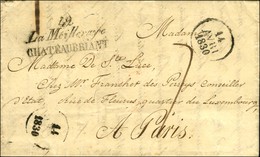 42
La Meilleraye
CHATEAUBRIANT
14
1830
Madame De Ste Luce,
Chez Mr. Franchet des Perreys Conseiller
d'Etat, rue de Fleurus, quartier du Luxembourg,
14
1830
A Paris.